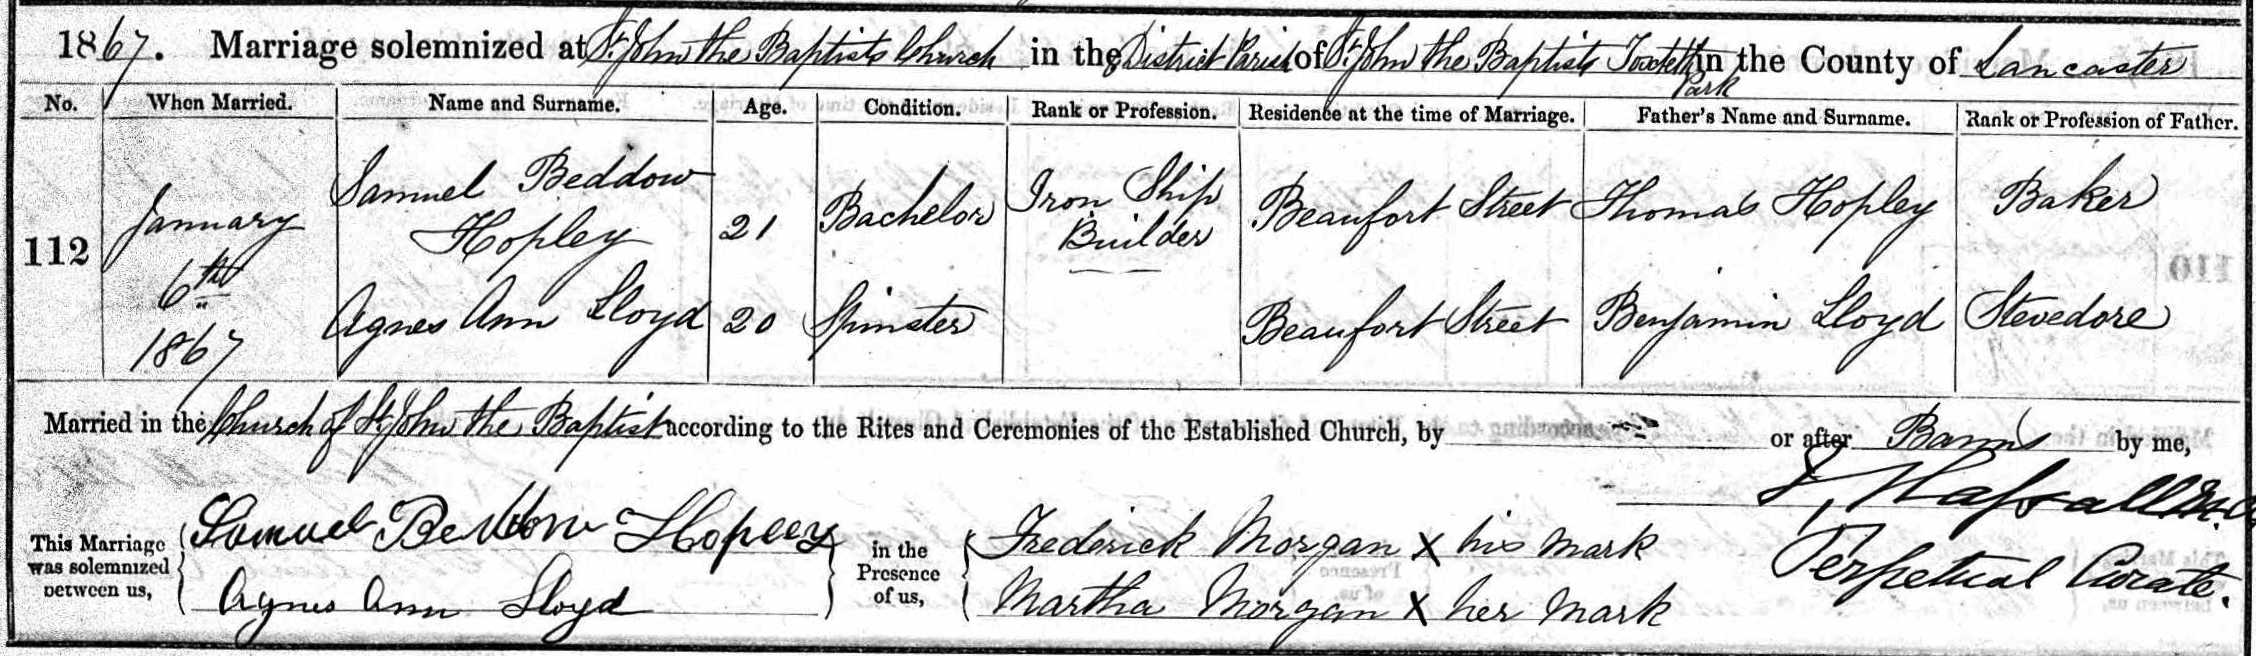 1867. Marriage solemnized at St. John the Baptists Church in the District Parish of St. John the Baptists Toxteth Park in the County of Lancaster
No. When Married. Name and Surname. Age. Condition. Rank or Profession. Residence at the time of Marriage. Father's Name and Surname. Rank or Profession of Father.
112 January 6th 1867 Samuel Beddow Hopley 21 Bachelor Iron Ship Builder Beaufort Street Thomas Hopley Baker
Agnes Ann Lloyd 20 Spinster Beaufort Street Benjamin Lloyd Stevedore
Married in the Church of St. John the Baptist according to the Rites and Ceremonies of the Established Church, by or after Banns by me,
Hassall M.A.
Perpetual Curate.
This Marriage was solemnized between us, Samuel Beddow Hopley
Agnes Ann Lloyd
in the Presence of us, Frederick Morgan X his mark
Martha Morgan X her mark